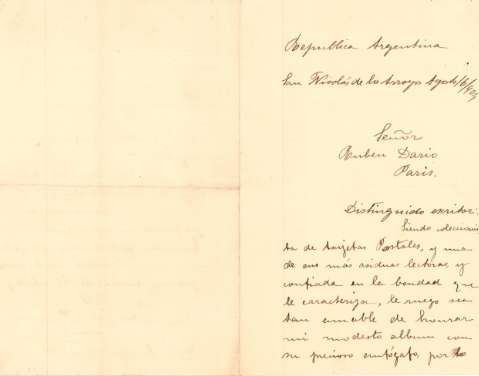 Republica Argentina
San Nicolás de los Arroyos Agosto
Señor
Ruben Dario
Paris.
Distinguido escritor:
Siendo
de tarjetas Postales, y una
de sus más asiduas lectoras, y
confiada en la bondad que
le caracteriza, le ruego sea
tan amable de honrar
mi modesto album con
su precioso autógrafo, por lo